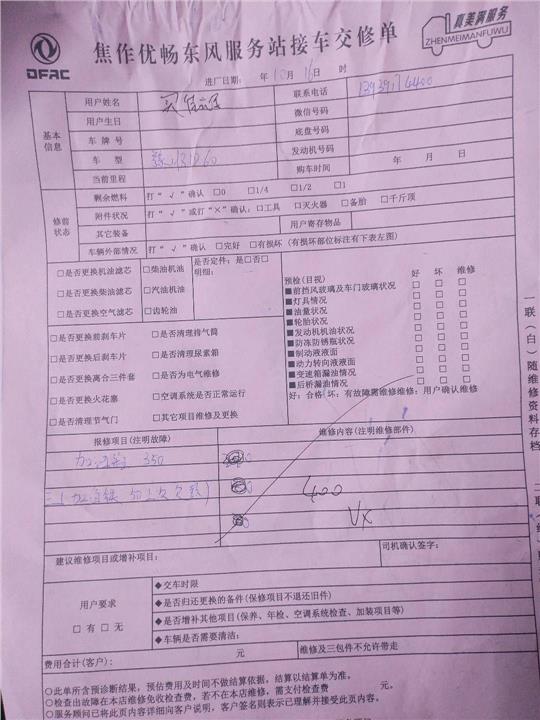 DFAC
焦作优畅东风服务站接车交修单
真美满服务
ZHENMEIMANFUWU
进厂日期： 年 10 月 16 日 时
基本信息
用户姓名 联系电话
用户生日 微信号码
车牌号 底盘号码
车型 发动机号码
当前里程 购车时间 年 月 日
修前状态
剩余燃料 打“√”确认 □0 □1/4 □1/2 □1
附件状况 打“√”或打“×”确认：□工具 □灭火器 □备胎 □千斤顶
其它装备 用户寄存物品
车辆外部情况 打“√”确认 □完好 □有损坏（有损坏部位标注有下表左图）
□是否更换机油滤芯 □柴油机油 是否定件：是□否□
明细：
□是否更换柴油滤芯 □汽油机油
□是否更换空气滤芯 □齿轮油
□是否更换前刹车片 □是否清理排气筒
□是否更换后刹车片 □是否清理尿素箱
□是否更换离合三件套 □是否为电气维修
□是否更换火花塞 □空调系统是否正常运行
□是否清理节气门 □其它项目维修及更换
预检(目视) 好 坏 维修
■前挡风玻璃及车门玻璃状况 □ □ □
■灯具情况 □ □ □
■油量状况 □ □ □
■轮胎状况 □ □ □
■发动机机油状况 □ □ □
■防冻防锈瓶状况 □ □ □
■制动液液面 □ □ □
■动力转向液液面 □ □ □
■变速箱漏油情况 □ □ □
■后桥漏油情况 □ □ □
好：合格 坏：有故障需维修维修：用户确认维修
报修项目(注明故障) 维修内容(注明维修部件)
350
400
建议维修项目或增补项目： 司机确认签字：
用户要求
□有 □无
◆交车时限
◆是否归还更换的备件(保修项目不退还旧件)
◆是否增补其他项目(保养、年检、空调系统检查、加装项目等)
◆车辆是否需要清洁：
费用合计(客户)： 元 维修及三包件不允许带走
○此单所含预诊断结果，预估费用及时间不做结算依据，结算以结算单为准。
○检查出故障在本店维修免收检查费，若不在本店维修，需支付检查费 元。
○服务顾问已将此页内容详细向客户说明，客户签名则表示已理解并接受此页内容。
一联（白）随维修资料存档